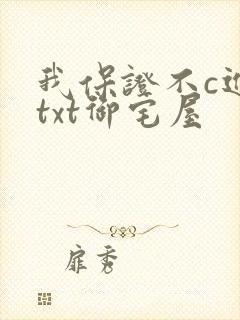 我保證不c进
txt御宅屋
扉秀